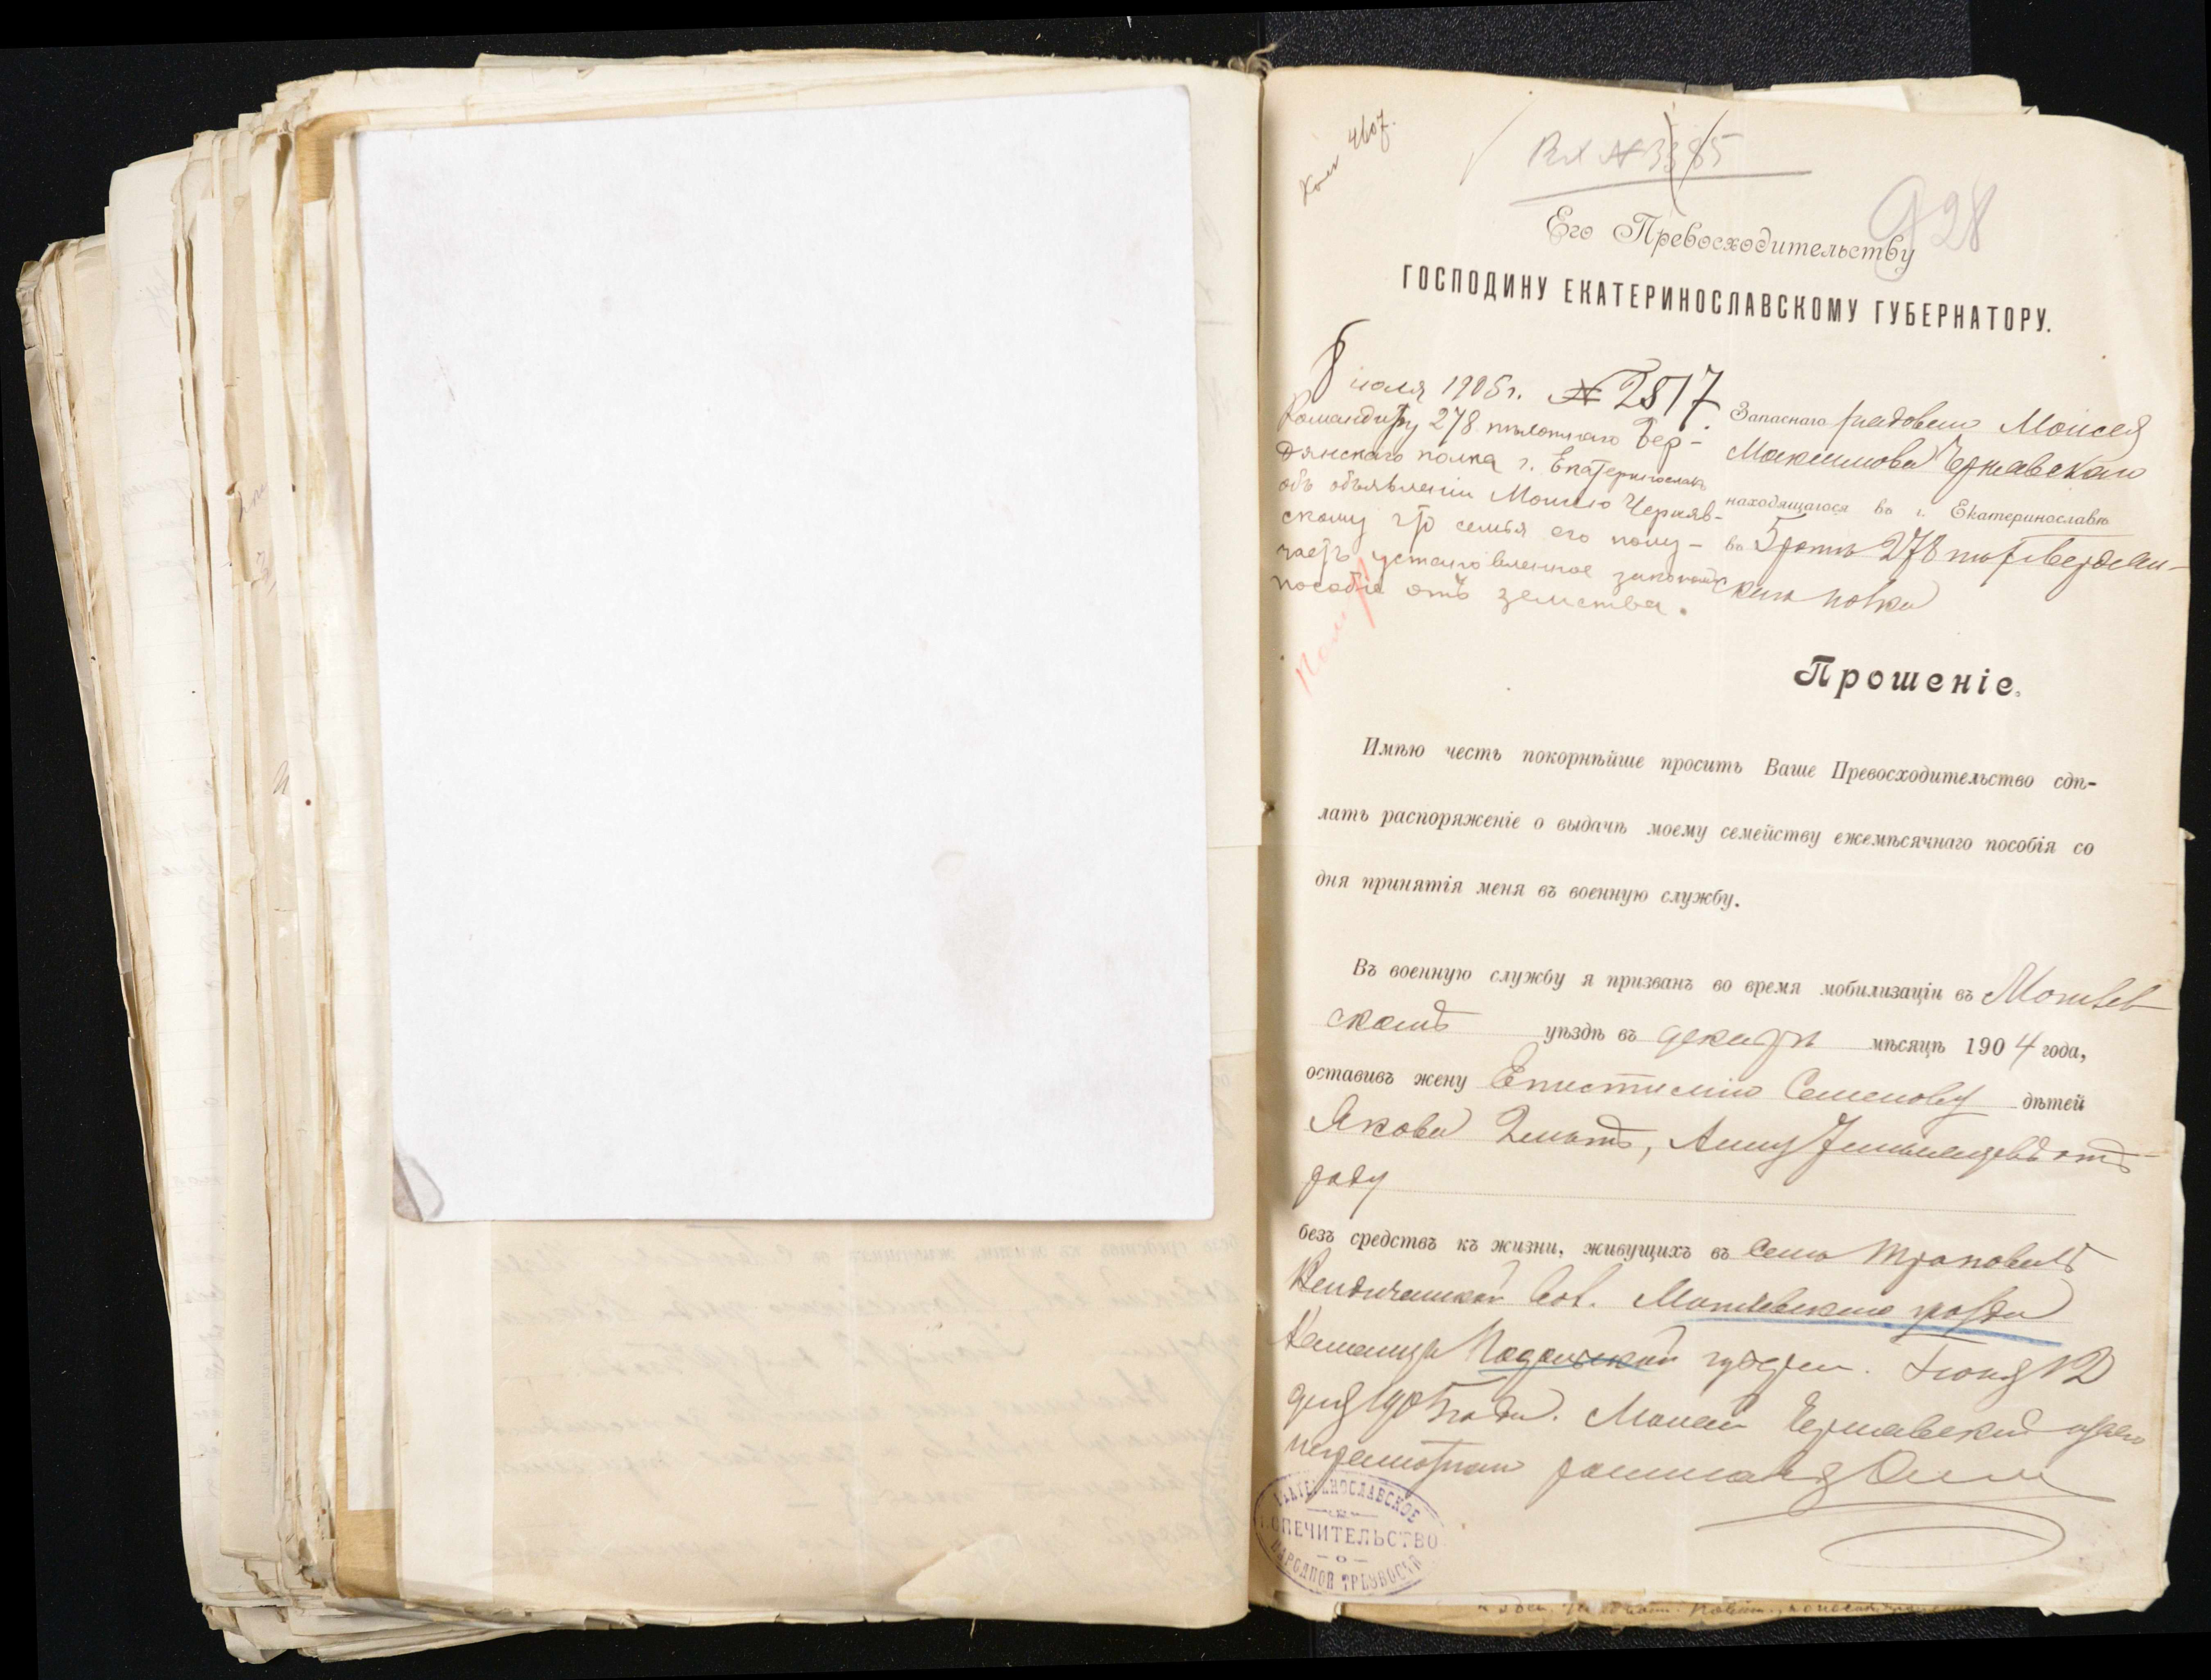 Вх № 3385
928
Его Превосходительству
ГОСПОДИНУ ЕКАТЕРИНОСЛАВСКОМУ ГУБЕРНАТОРУ.
8 іюля 1905 г. № 2817
Командиру 278 пѣхотнаго Бер-
дянскаго полка г. Екатеринославъ
объ объявленіи Моисею Черняв-
скому что семья его полу-
чаетъ установленное закономъ
пособіе отъ земства.
Запаснаго рядового Моисея
Максимова Чернавскаго
находящагося въ г. Екатеринославѣ
въ 5 ротѣ 278 пѣх Бердян-
скаго полка
Прошеніе.
Имѣю честь покорнѣйше просить Ваше Превосходительство сдѣ-
лать распоряженіе о выдачѣ моему семейству ежемѣсячнаго пособія со
дня принятія меня въ военную службу.
Въ военную службу я призванъ во время мобилизаціи въ Могилев
скомъ уѣздѣ въ декабрѣ мѣсяцѣ 1904 года,
оставивъ жену Епистимію Семенову дѣтей
Якова 2 лѣтъ, Анну 7 мѣсяцевъ отъ
роду
безъ средствъ къ жизни, живущихъ въ селѣ
Вол. Могилевскаго уѣзда
Подольской губерніи. Іюня 12
дня 1905 года. Моисей Чернавский
неграмотный
ЕКАТЕРИНОСЛАВСКОЕ
ПОПЕЧИТЕЛЬСТВО
О
НАРОДНОЙ ТРЕЗВОСТИ